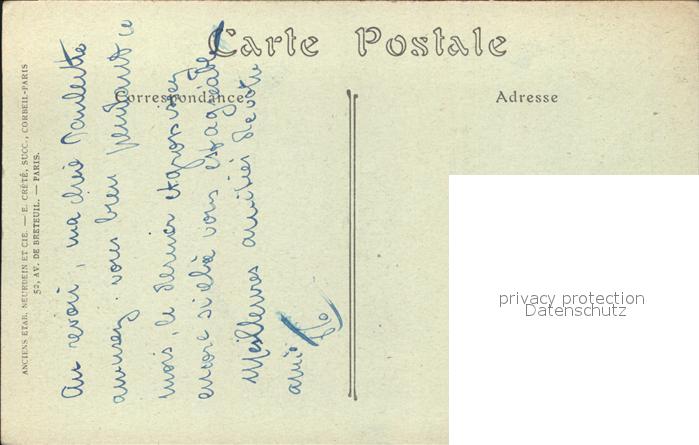 Carte Postale
Correspondance
Adresse
ANCIENS ETAB. NEURDEIN ET CIE. — E. CRÉTÉ, SUCC., CORBEIL-PARIS
52, AV. DE BRETEUIL. — PARIS.
Au revoir, ma chère Paulette
amusez vous bien pendant ce
mois, le dernier et
encore si cela vous est agréable
Meilleures amitiés de votre
amie
privacy protection
Datenschutz